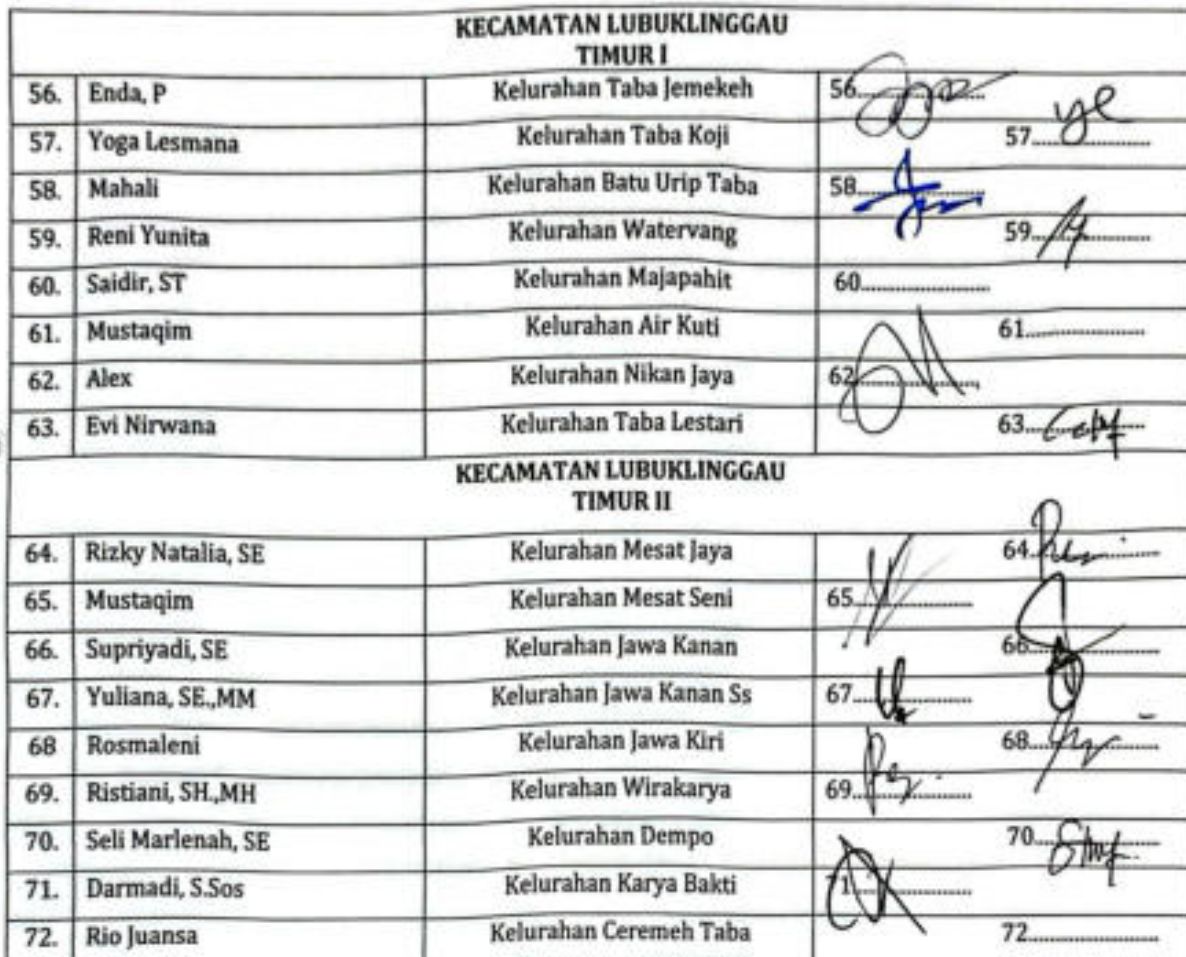 KECAMATAN LUBUKLINGGAU
TIMUR I
56. Enda, P Kelurahan Taba Jemekeh 56
57. Yoga Lesmana Kelurahan Taba Koji 57
58. Mahali Kelurahan Batu Urip Taba 58
59. Reni Yunita Kelurahan Watervang 59
60. Saidir, ST Kelurahan Majapahit 60
61. Mustaqim Kelurahan Air Kuti 61
62. Alex Kelurahan Nikan Jaya 62
63. Evi Nirwana Kelurahan Taba Lestari 63
KECAMATAN LUBUKLINGGAU
TIMUR II
64. Rizky Natalia, SE Kelurahan Mesat Jaya 64
65. Mustaqim Kelurahan Mesat Seni 65
66. Supriyadi, SE Kelurahan Jawa Kanan 66
67. Yuliana, SE.,MM Kelurahan Jawa Kanan Ss 67
68 Rosmaleni Kelurahan Jawa Kiri 68
69. Ristiani, SH.,MH Kelurahan Wirakarya 69
70. Seli Marlenah, SE Kelurahan Dempo 70
71. Darmadi, S.Sos Kelurahan Karya Bakti 71
72. Rio Juansa Kelurahan Ceremeh Taba 72